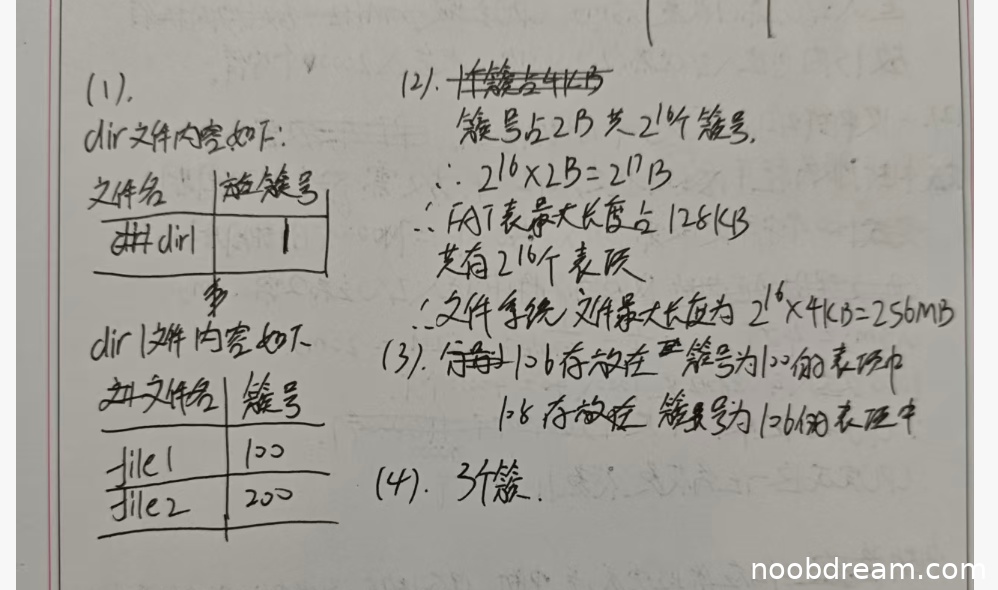 (1).
dir文件内容如下:
文件名 簇号
dir1 1
dir1文件内容如下
文件名 簇号
file1 100
file2 200
(2). 1个簇占4KB
簇号占2B 共2^16个簇号.
∴ 2^16×2B=2^17B
∴ FAT表最大长度占128KB
共有2^16个表项
∴文件系统文件最大长度为 2^16×4KB=256MB
(3). 106存放在簇号为100的表项中
108存放在 簇号为106的表项中
(4). 3个簇.
noobdream.com